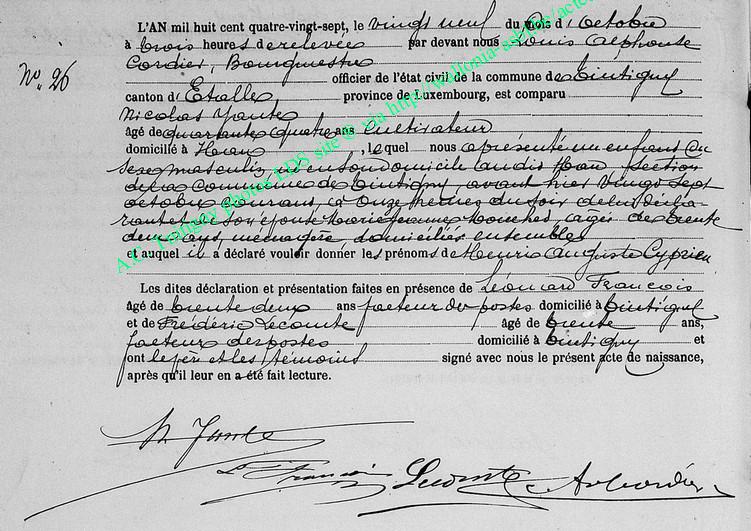 L'AN mil huit cent quatre-vingt-sept, le vingt neuf du mois d'octobre
à trois heures de relevée par devant nous Louis Alphonse
Cordier, Bourgmestre
officier de l'état civil de la commune de Tintigny
No. 26
canton d'Etalle province de Luxembourg, est comparu
Nicolas Jante
âgé de quarante quatre ans Cultivateur
domicilié à Han, lequel nous a présenté un enfant du
sexe masculin, né en son domicile au dit Han section
de la commune de Tintigny, avant hier vingt sept
octobre courant, à onze heures du soir de lui décla-
rant et de son épouse Marie Jeanne, âgée de trente
deux ans, ménagère, domiciliés ensemble
et auquel il a déclaré vouloir donner les prénoms de Henri Auguste Cyprien
Les dites déclaration et présentation faites en présence de Léonard François
âgé de trente deux ans facteur des postes domicilié à Tintigny
et de Frédéric Lecomte âgé de trente ans,
facteur des postes domicilié à Tintigny et
ont le père et les témoins signé avec nous le présent acte de naissance,
après qu'il leur en a été fait lecture.
N Jante
L François Lecomte A Cordier
A.C. Tintigny photos LDS site @ via http://wallonia-asbl.be/actes